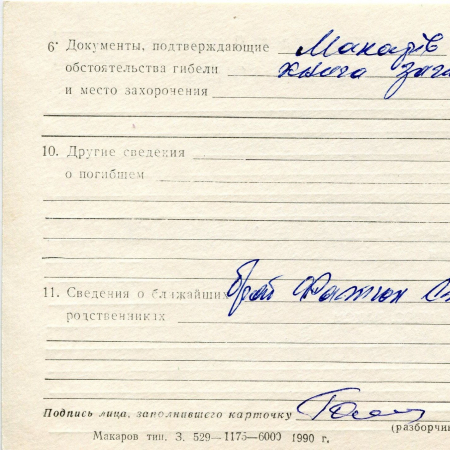 6• Документы, подтверждающие Макарів
обстоятельства гибели книга
и место захоронения
10. Другие сведения
о погибшем
11. Сведения о ближайших брат
родственниках
Подпись лица, заполнившего карточку
(разборчи
Макаров тип. З. 529—1175—6000 1990 г.